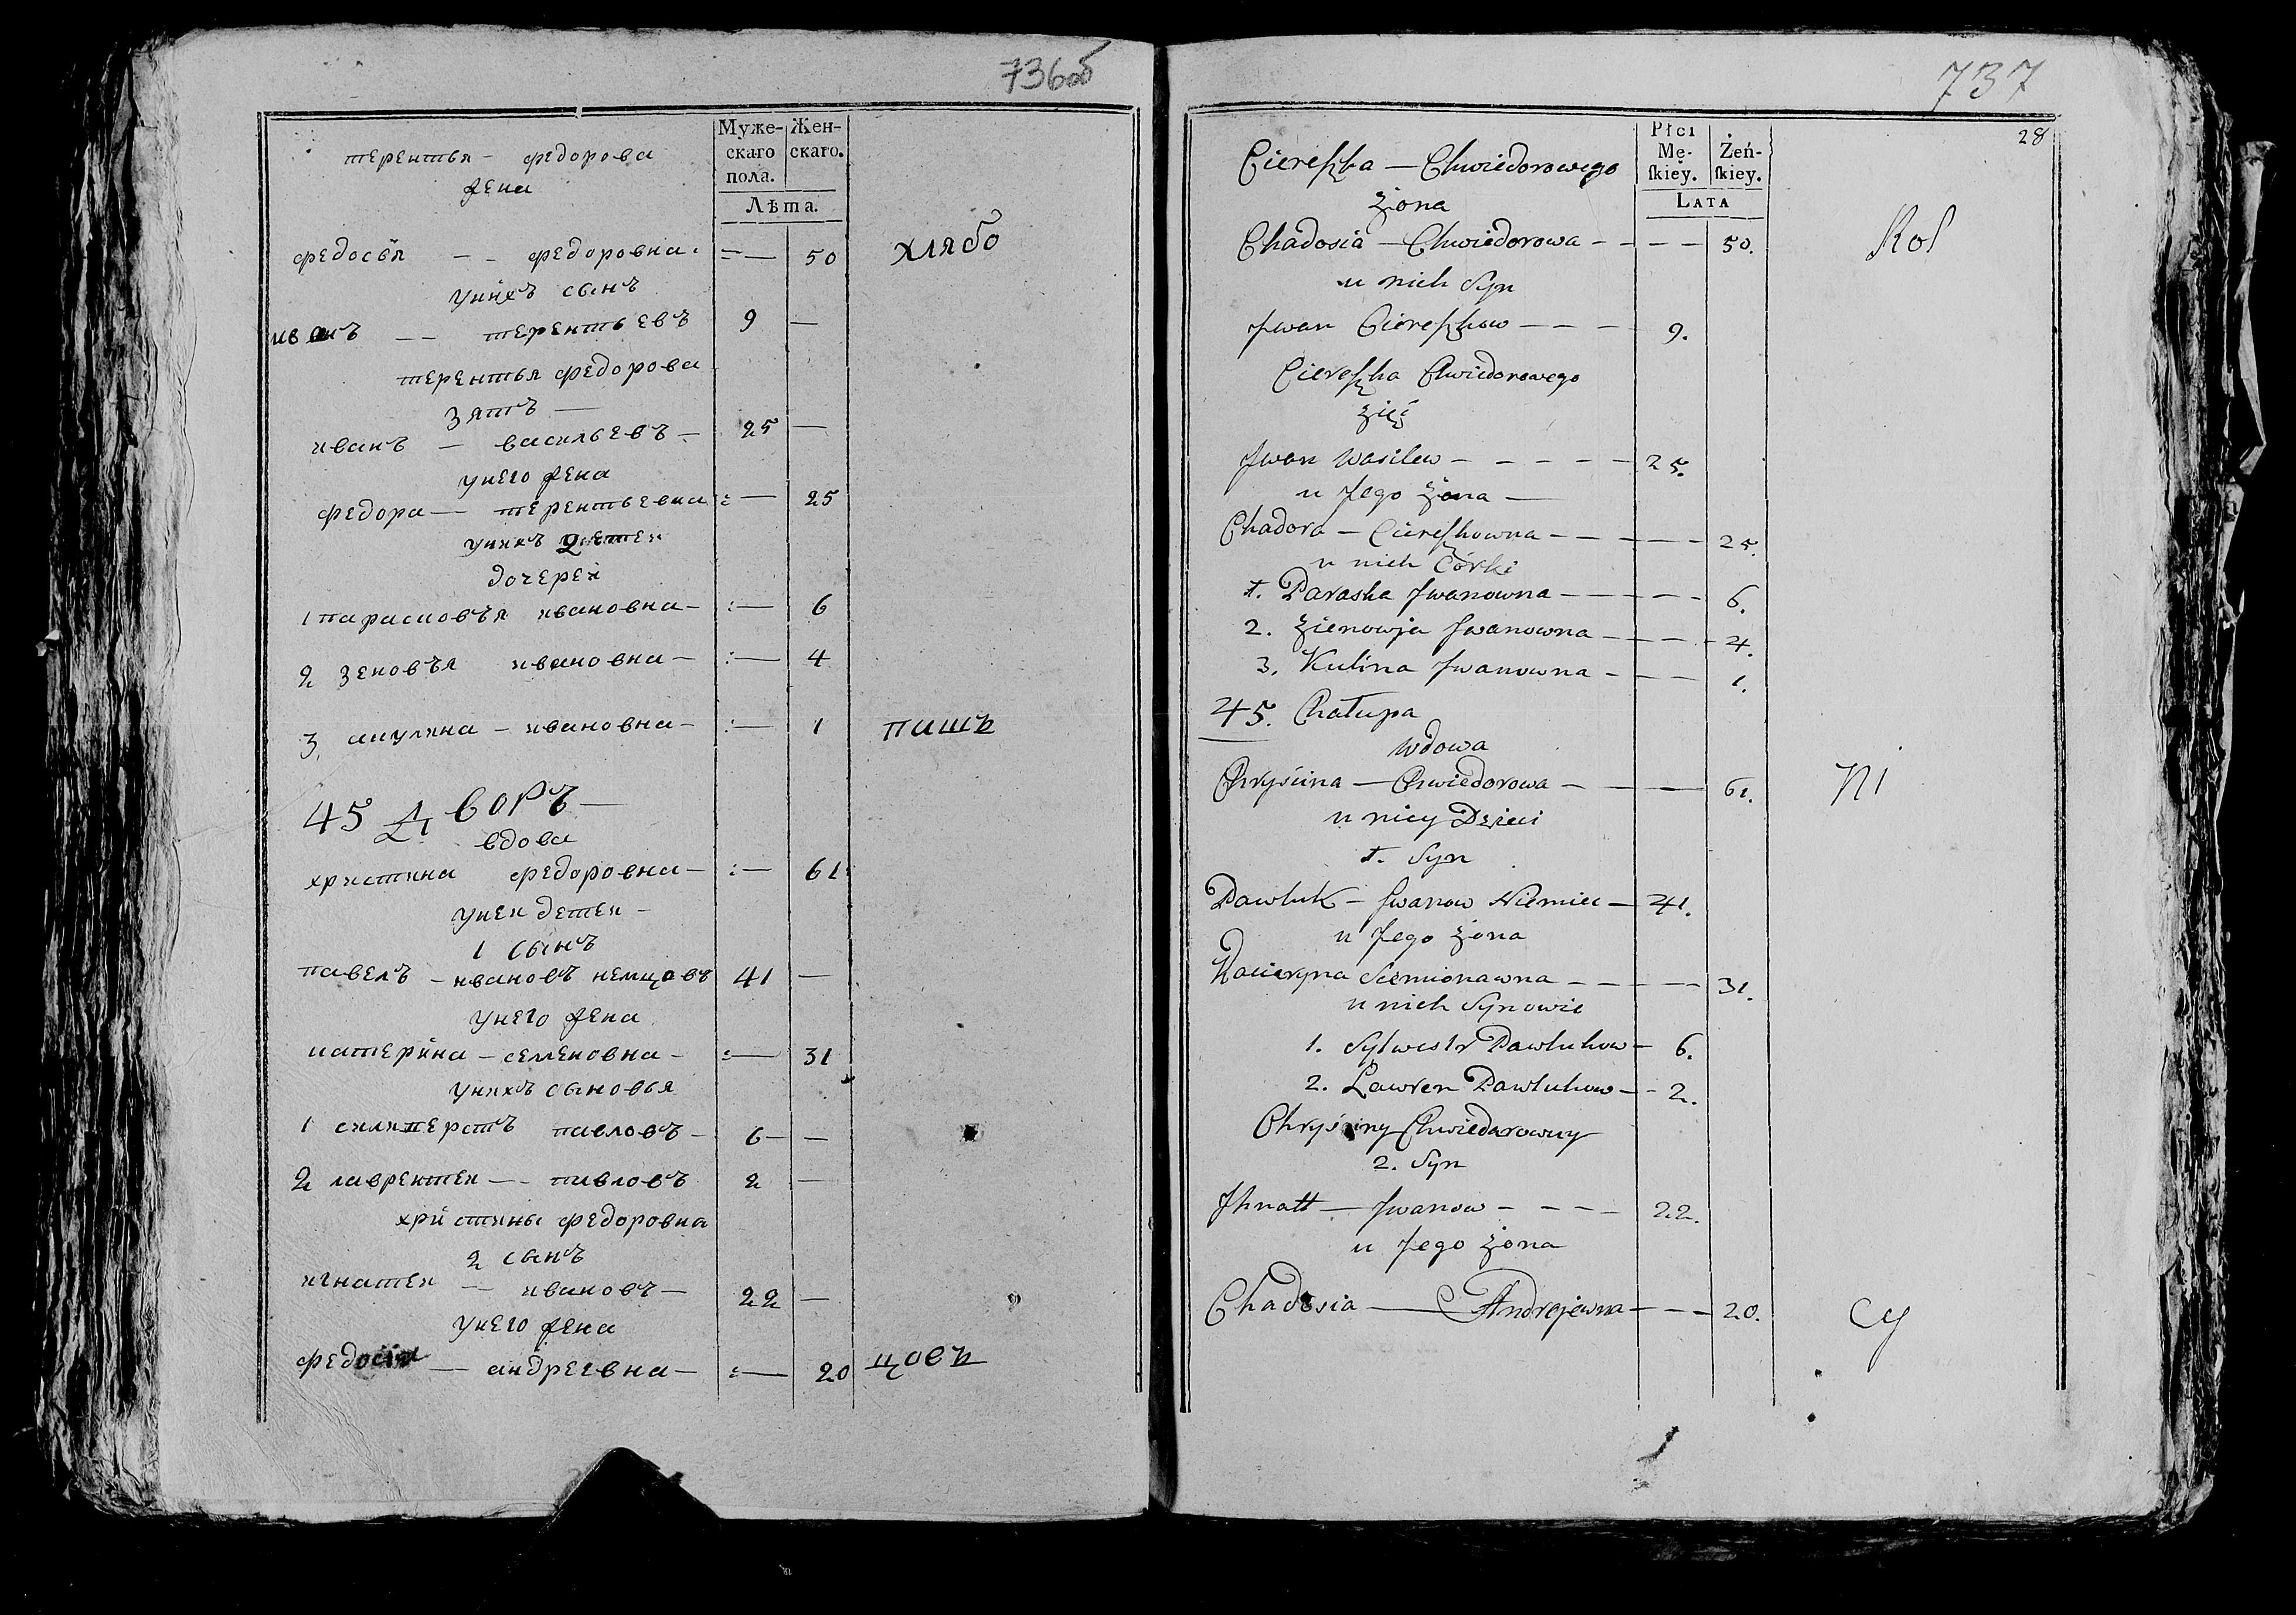 736об
Муже- Жен-
скаго скаго.
пола.
Лѣта.
терентья - федорова
жена
федосѣя - - федоровна 50 хлябо
унихъ сынъ
иванъ -- терентьевъ 9 —
терентья федорова
зять —
иванъ — васильевъ — 25 —
унего жена
федора — терентьевна 25
унихъ детеи
дочереи
1 парасковъя ивановна — 6
2 зеновъя ивановна — 4
3 акулина — ивановна — 1 пашъ
45 дворъ —
вдова
христина федоровна — 61
унеи детеи —
1 сынъ
павелъ — ивановъ немцовъ 41 —
унего жена
катерина — семеновна — 31
унихъ сыновья
1 павловъ — 6 —
2 лаврентеи -- павловъ 2 —
христины федоровна
2 сынъ
игнатеи — ивановъ — 22 —
унего жена
федосія — андреевна — 20 цовъ
737
28
Płci
Mę- Żeń-
ſkiey. ſkiey.
LATA
Cereſzka — Chwiedorowego
żona
Chadosia — Chwiedorowa - - - - 50. Kol
u nich Syn
Jwan Ciereſzkow - - - 9.
Ciereſzka Chwiedorowego
zięć
Jwan Wasilew - - - - - 25.
u Jego żona —
Chadora — Ciereſzkowna - - - - - 25.
u nich Córki
1. Paraska Jwanowna - - - - 6.
2. Zienowja Jwanowna - - - - 4.
3. Kulina Jwanowna - - - 1.
45. Chałupa
Wdowa
Chryścina — Chwiedorowa - - — 61. Ni
u niey Dzieci
1. Syn
Pawluk — Jwanow Niemiec — 41.
u Jego żona
Kacieryna Siemionawna - - - - - 31.
u nich Synowie
1. Sylwestr Pawlukow — 6.
2. Lawren Pawlukow - - 2.
Chryściny Chwiedorowny
2. Syn
Jhnatt — Jwanow - - - - 22.
u Jego żona
Chadosia — Andrejewna - - - 20. cy